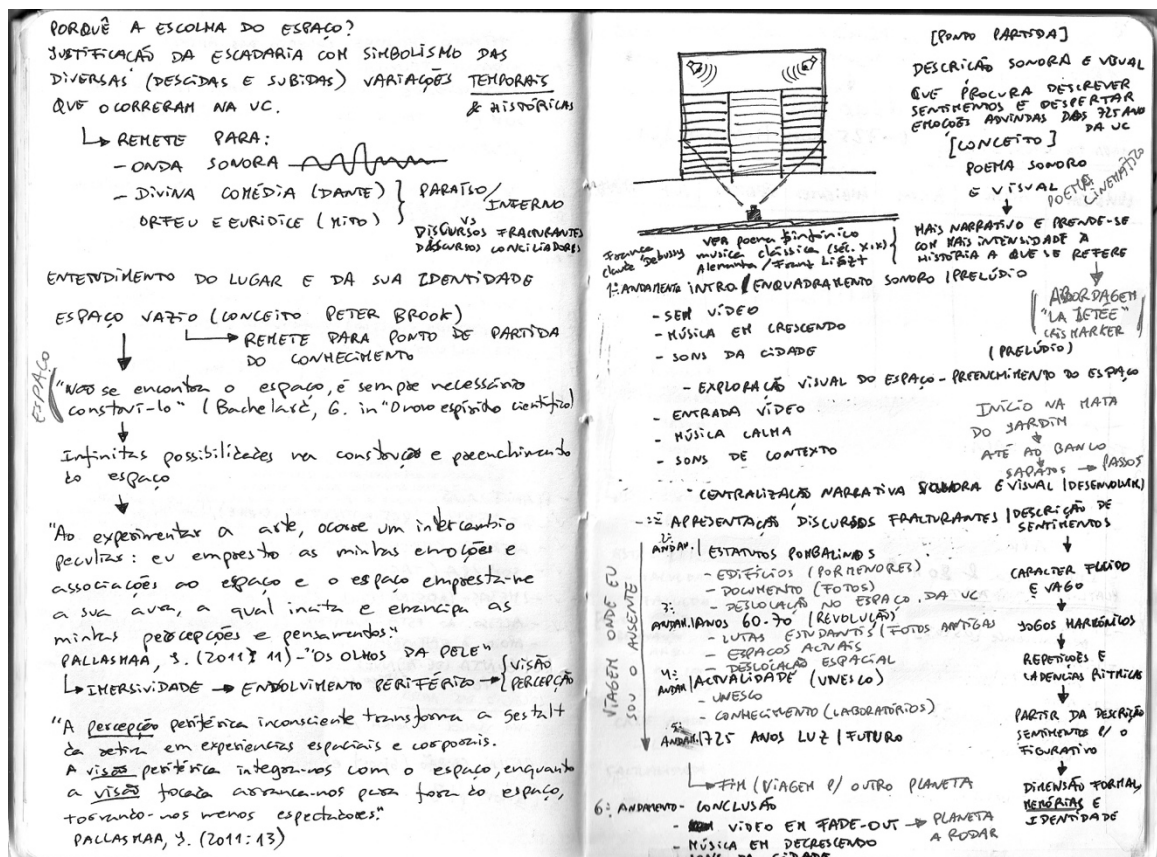 PORQUÊ A ESCOLHA DO ESPAÇO?
JUSTIFICAÇÃO DA ESCADARIA COM SIMBOLISMO DAS
DIVERSAS (DESCIDAS E SUBIDAS) VARIAÇÕES TEMPORAIS
QUE OCORRERAM NA UC. & HISTÓRICAS
REMETE PARA:
- ONDA SONORA
- DIVINA COMÉDIA (DANTE) } PARAÍSO/
ORFEU E EURIDICE (MITO) INFERNO
VS
DISCURSOS FRACTURANTES
DISCURSOS CONCILIADORES
ENTENDIMENTO DO LUGAR E DA SUA IDENTIDADE
ESPAÇO VAZIO (CONCEITO PETER BROOK)
REMETE PARA PONTO DE PARTIDA
DO CONHECIMENTO
ESPAÇO
"Não se encontra o espaço, é sempre necessário
construí-lo" (Bachelard, G. in "O novo espírito científico)
Infinitas possibilidades na construção e preenchimento
do espaço
"Ao experimentar a arte, ocorre um intercambio
peculiar: eu empresto as minhas emoções e
associações ao espaço e o espaço empresta-me
a sua aura, a qual incita e emancipa as
minhas percepções e pensamentos."
PALLASMAA, J. (2011: 11) - "OS OLHOS DA PELE"
IMERSIVIDADE → ENVOLVIMENTO PERIFÉRICO → { VISÃO
PERCEPÇÃO
"A percepção periférica inconsciente transforma a gestalt
da retina em experiencias espaciais e corporais.
A visão periférica integra-nos com o espaço, enquanto
a visão focada arranca-nos para fora do espaço,
tornando-nos menos espectadores."
PALLASMAA, J. (2011: 13)
[PONTO PARTIDA]
DESCRIÇÃO SONORA E VISUAL
QUE PROCURA DESCREVER
SENTIMENTOS E DESPERTAR
EMOÇÕES ADVINDAS DOS 725 ANO
DA UC
[CONCEITO]
POEMA SONORO
E VISUAL
POEMA CINEMÁTICO
MAIS NARRATIVO E PRENDE-SE
COM MAIS INTENSIDADE À
HISTÓRIA A QUE SE REFERE
ABORDAGEM
"LA JETÉE"
CRIS MARKER
França
Claude Debussy
VER poema sinfónico
musica clássica (séc. XIX)
Alemanha / Franz Liszt
1º ANDAMENTO INTRO / ENQUADRAMENTO SONORO / PRELÚDIO
- SEM VÍDEO
- MÚSICA EM CRESCENDO
- SONS DA CIDADE
(PRELÚDIO)
- EXPLORAÇÃO VISUAL DO ESPAÇO - PREENCHIMENTO DO ESPAÇO
- ENTRADA VÍDEO
- MÚSICA CALMA
- SONS DE CONTEXTO
INÍCIO NA MATA
DO JARDIM
ATÉ AO BANCO
SAPATOS → PASSOS
CENTRALIZAÇÃO NARRATIVA SONORA E VISUAL
APRESENTAÇÃO DISCURSOS FRACTURANTES | DESCRIÇÃO DE
SENTIMENTOS
VIAGEM ONDE EU
SOU O AUSENTE
2º ANDAM. | ESTATUTOS POMBALINOS
- EDIFÍCIOS (PORMENORES)
- DOCUMENTO (FOTOS)
- DESLOCAÇÃO NO ESPAÇO DA UC
3º ANDAM. | ANOS 60-70 (REVOLUÇÃO)
- LUTAS ESTUDANTIS / FOTOS ANTIGAS
- ESPAÇOS ACTUAIS
- DESLOCAÇÃO ESPACIAL
4º ANDAM | ACTUALIDADE (UNESCO)
- UNESCO
- CONHECIMENTO (LABORATÓRIOS)
5º ANDAM. | 725 ANOS LUZ | FUTURO
FIM (VIAGEM P/ OUTRO PLANETA
CARACTER FLUIDO
E VAGO
JOGOS HARMÓNICOS
REPETIÇÕES E
CADENCIAS RITMICAS
PARTIR DA DESCRIÇÃO
SENTIMENTOS P/ O
FIGURATIVO
DIMENSÃO FORMAL,
MEMÓRIAS E
IDENTIDADE
6º ANDAMENTO - CONCLUSÃO
- VIDEO EM FADE-OUT → PLANETA
A RODAR
- MÚSICA EM DECRESCENDO
- SONS DA CIDADE